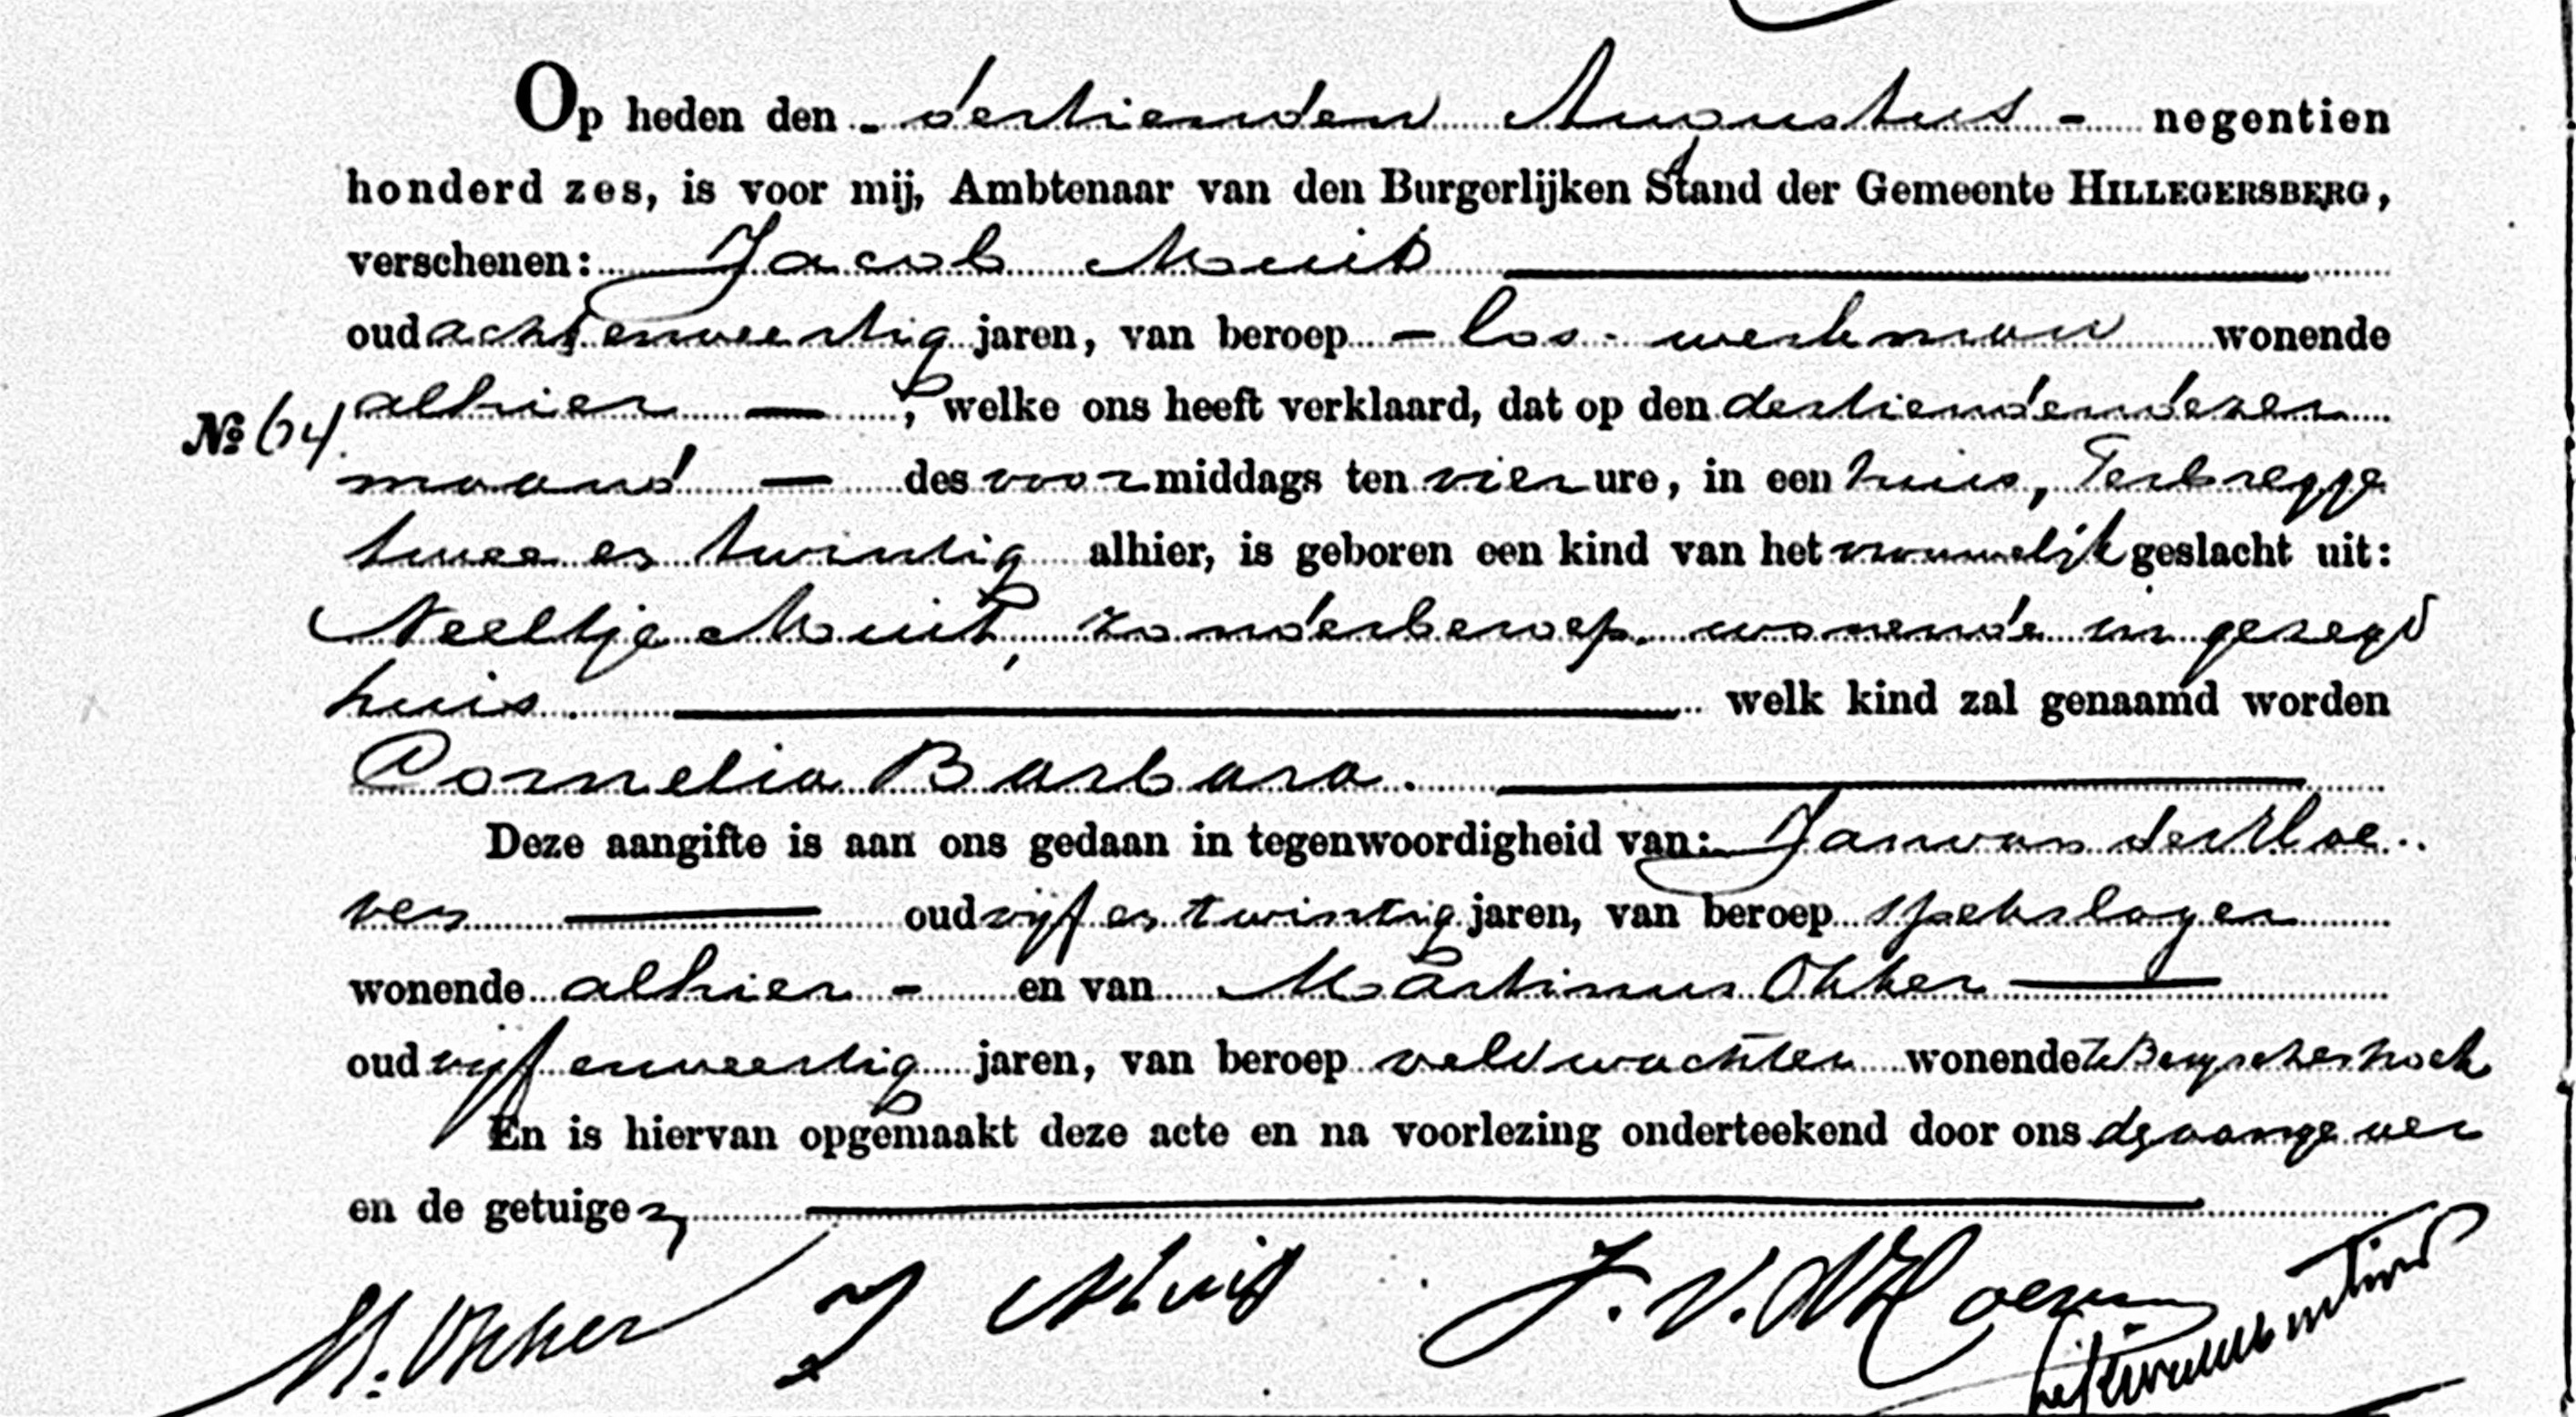 Op heden den - dertienden Augustus - negentien
honderd zes, is voor mij, Ambtenaar van den Burgerlijken Stand der Gemeente HILLEGERSBERG,
verschenen: Jacob Muit
oud achtenveertig jaren, van beroep - los-werkman wonende
alhier —, welke ons heeft verklaard, dat op den dertienden dezer
No 64
maand — des voormiddags ten vier ure, in een huis, Terbregge
twee en twintig alhier, is geboren een kind van het vrouwelijk geslacht uit:
Neeltje Muit, zonder beroep, wonende in gezegd
huis welk kind zal genaamd worden
Cornelia Barbara.
Deze aangifte is aan ons gedaan in tegenwoordigheid van: Jan van der Hoe-
ven oud vijf en twintig jaren, van beroep spekslager
wonende alhier - en van Martinus Okker —
oud vijf enveertig jaren, van beroep veldwachter wonende te Bergschenhoek
En is hiervan opgemaakt deze acte en na voorlezing onderteekend door ons de aangever
en de getuigen,
M. Okker J Muit J. v. d Hoeven